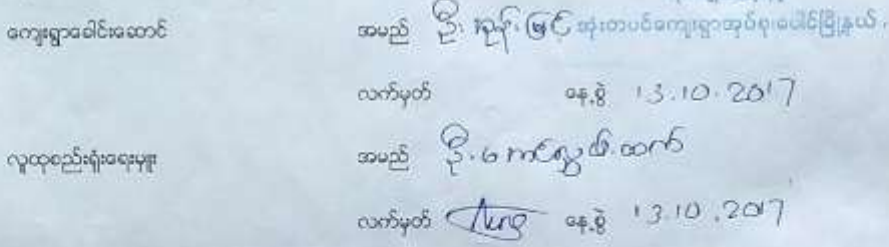 ကျေးရွာခေါင်းဆောင် အမည် ဦး ထွန်းမြင့် အုံးတပင်ကျေးရွာအုပ်စု၊ပေါင်မြို့နယ်။
လက်မှတ် နေ့စွဲ 13.10.2017
လူထုစည်းရုံးရေးမှူး အမည် ဦး အောင်
လက်မှတ် နေ့စွဲ 13.10.2017